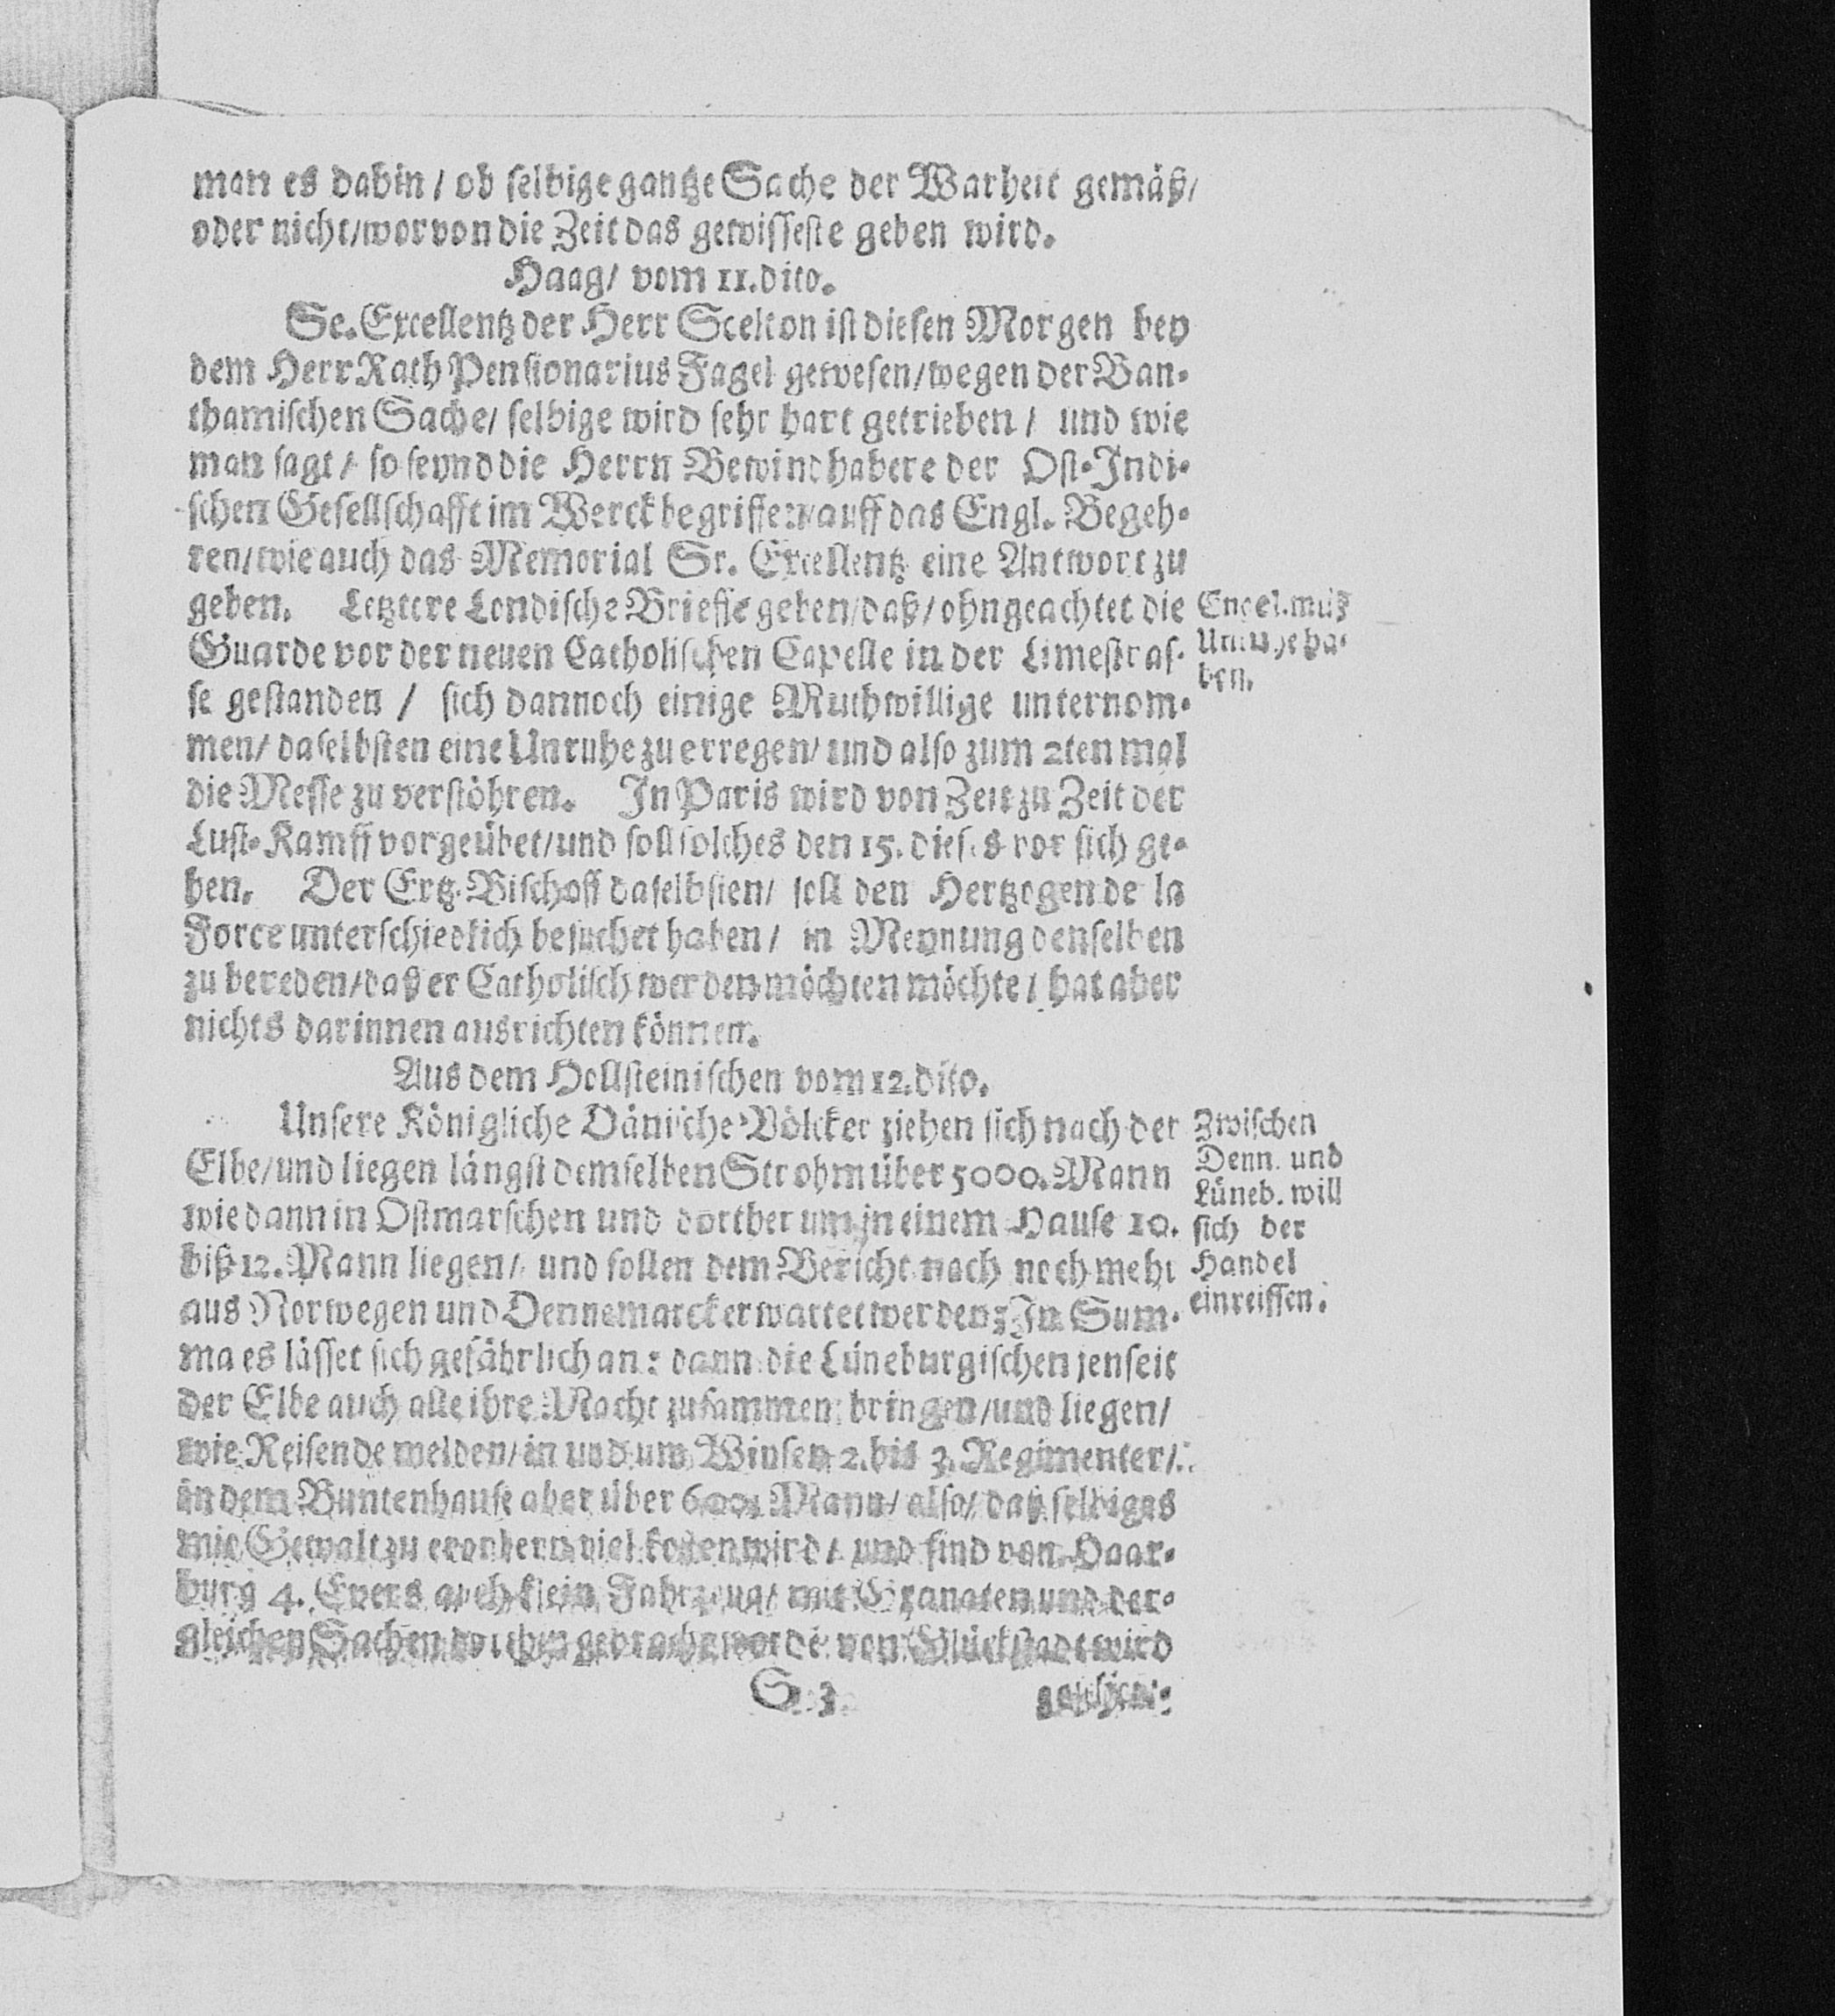 man es dahin / ob selbige gantze Sache der Warheit gemäß/
oder nicht/worvon die Zeit das gewisseste geben wird.
Haag/ vom 11. dito.
Se. Excellentz der Herr Scelton ist diesen Morgen bey
dem Herr Rath Pensionarius Fagel gewesen/wegen der Ban-
thamischen Sache/ selbige wird sehr hart getrieben / und wie
man sagt / so seynd die Herrn Bewindhabere der Ost-Indi-
schen Gesellschafft im Werck begriffen/auff das Engl. Begeh-
ren/wie auch das Memorial Sr. Excellentz eine Antwort zu
geben. Letztere Londische Brieffe geben/daß/ohngeachtet die
Engel. muß
Unruhe ha-
ben.
Guarde vor der neuen Catholischen Capelle in der Limestras-
se gestanden / sich dannoch einige Muthwillige unternom-
men/ daselbsten eine Unruhe zu erregen/ und also zum 2ten mal
die Messe zu verstöhren. In Paris wird von Zeit zu Zeit der
Lust-Kampff vorgeübet/und soll solches den 15. dieses vor sich ge-
hen. Der Ertz-Bischoff daselbsten/ soll den Hertzogen de la
Force unterschiedlich besuchet haben / in Meynung denselben
zu bereden/daß er Catholisch werden möchten möchte / hat aber
nichts darinnen ausrichten können.
Aus dem Hollsteinischen vom 12. dito.
Unsere Königliche Dänische Völcker ziehen sich nach der
Zwischen
Denn. und
Lüneb. will
sich der
Handel
einreissen.
Elbe/und liegen längst demselben Strohm über 5000. Mann
wie dann in Ostmarschen und dortherum in einem Hause 10.
biß 12. Mann liegen/ und sollen dem Bericht nach noch mehr
aus Norwegen und Dennemarck erwartet werden; In Sum-
ma es lässet sich gefährlich an: dann die Lüneburgischen jenseit
der Elbe auch alle ihre Macht zusammen bringen/und liegen/
wie Reisende melden/in und um Winsen 2. bis 3. Regimenter/
in dem Buntenhause aber über 600. Mann/ also/ daß selbiges
mit Gewalt zu erobern viel kosten wird / und sind von Haar-
burg 4. Evers auch klein Fahrzeug/ mit Granaten und der-
gleichen Sachen dorthin gebracht worde von Glückstadt wird
S 3